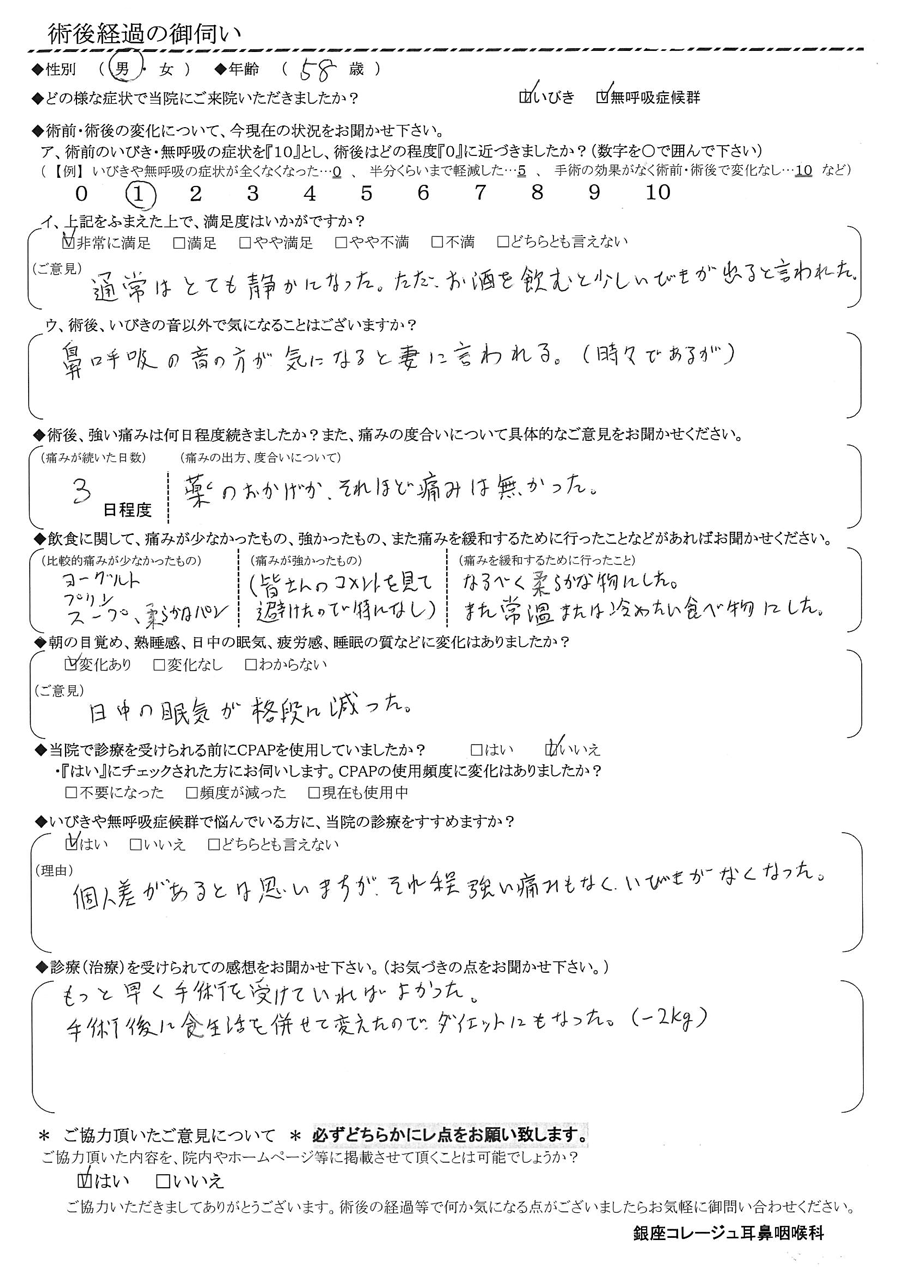 術後経過の御伺い
◆性別 （ 男 ・ 女 ） ◆年齢 （ 58 歳 ）
◆どの様な症状で当院にご来院いただきましたか？ ☑いびき ☑無呼吸症候群
◆術前・術後の変化について、今現在の状況をお聞かせ下さい。
ア、術前のいびき・無呼吸の症状を『10』とし、術後はどの程度『0』に近づきましたか？（数字を〇で囲んで下さい）
（【例】 いびきや無呼吸の症状が全くなくなった…0 、 半分くらいまで軽減した…5 、 手術の効果がなく術前・術後で変化なし…10 など）
0 1 2 3 4 5 6 7 8 9 10
イ、上記をふまえた上で、満足度はいかがですか？
☑非常に満足 □満足 □やや満足 □やや不満 □不満 □どちらとも言えない
（ご意見）
通常はとても静かになった。ただ、お酒を飲むと少しいびきが出ると言われた。
ウ、術後、いびきの音以外で気になることはございますか？
鼻呼吸の音の方が気になると妻に言われる。（時々であるが）
◆術後、強い痛みは何日程度続きましたか？また、痛みの度合いについて具体的なご意見をお聞かせください。
（痛みが続いた日数） （痛みの出方、度合いについて）
3 日程度 薬のおかげか、それほど痛みは無かった。
◆飲食に関して、痛みが少なかったもの、強かったもの、また痛みを緩和するために行ったことなどがあればお聞かせください。
（比較的痛みが少なかったもの） （痛みが強かったもの） （痛みを緩和するために行ったこと）
ヨーグルト
プリン
スープ、柔らかなパン
（皆さんのコメントを見て
避けたので特になし）
なるべく柔らかな物にした。
また常温または冷めたい食べ物にした。
◆朝の目覚め、熟睡感、日中の眠気、疲労感、睡眠の質などに変化はありましたか？
☑変化あり □変化なし □わからない
（ご意見）
日中の眠気が格段に減った。
◆当院で診療を受けられる前にCPAPを使用していましたか？ □はい ☑いいえ
・『はい』にチェックされた方にお伺いします。CPAPの使用頻度に変化はありましたか？
□不要になった □頻度が減った □現在も使用中
◆いびきや無呼吸症候群で悩んでいる方に、当院の診療をすすめますか？
☑はい □いいえ □どちらとも言えない
（理由）
個人差があるとは思いますが、それ程強い痛みもなく、いびきがなくなった。
◆診療（治療）を受けられての感想をお聞かせ下さい。（お気づきの点をお聞かせ下さい。）
もっと早く手術を受けていればよかった。
手術後に食生活を併せて変えたので、ダイエットにもなった。（－2kg）
＊ ご協力頂いたご意見について ＊ 必ずどちらかにレ点をお願い致します。
ご協力頂いた内容を、院内やホームページ等に掲載させて頂くことは可能でしょうか？
☑はい □いいえ
ご協力いただきましてありがとうございます。術後の経過等で何か気になる点がございましたらお気軽に御問い合わせください。
銀座コレージュ耳鼻咽喉科